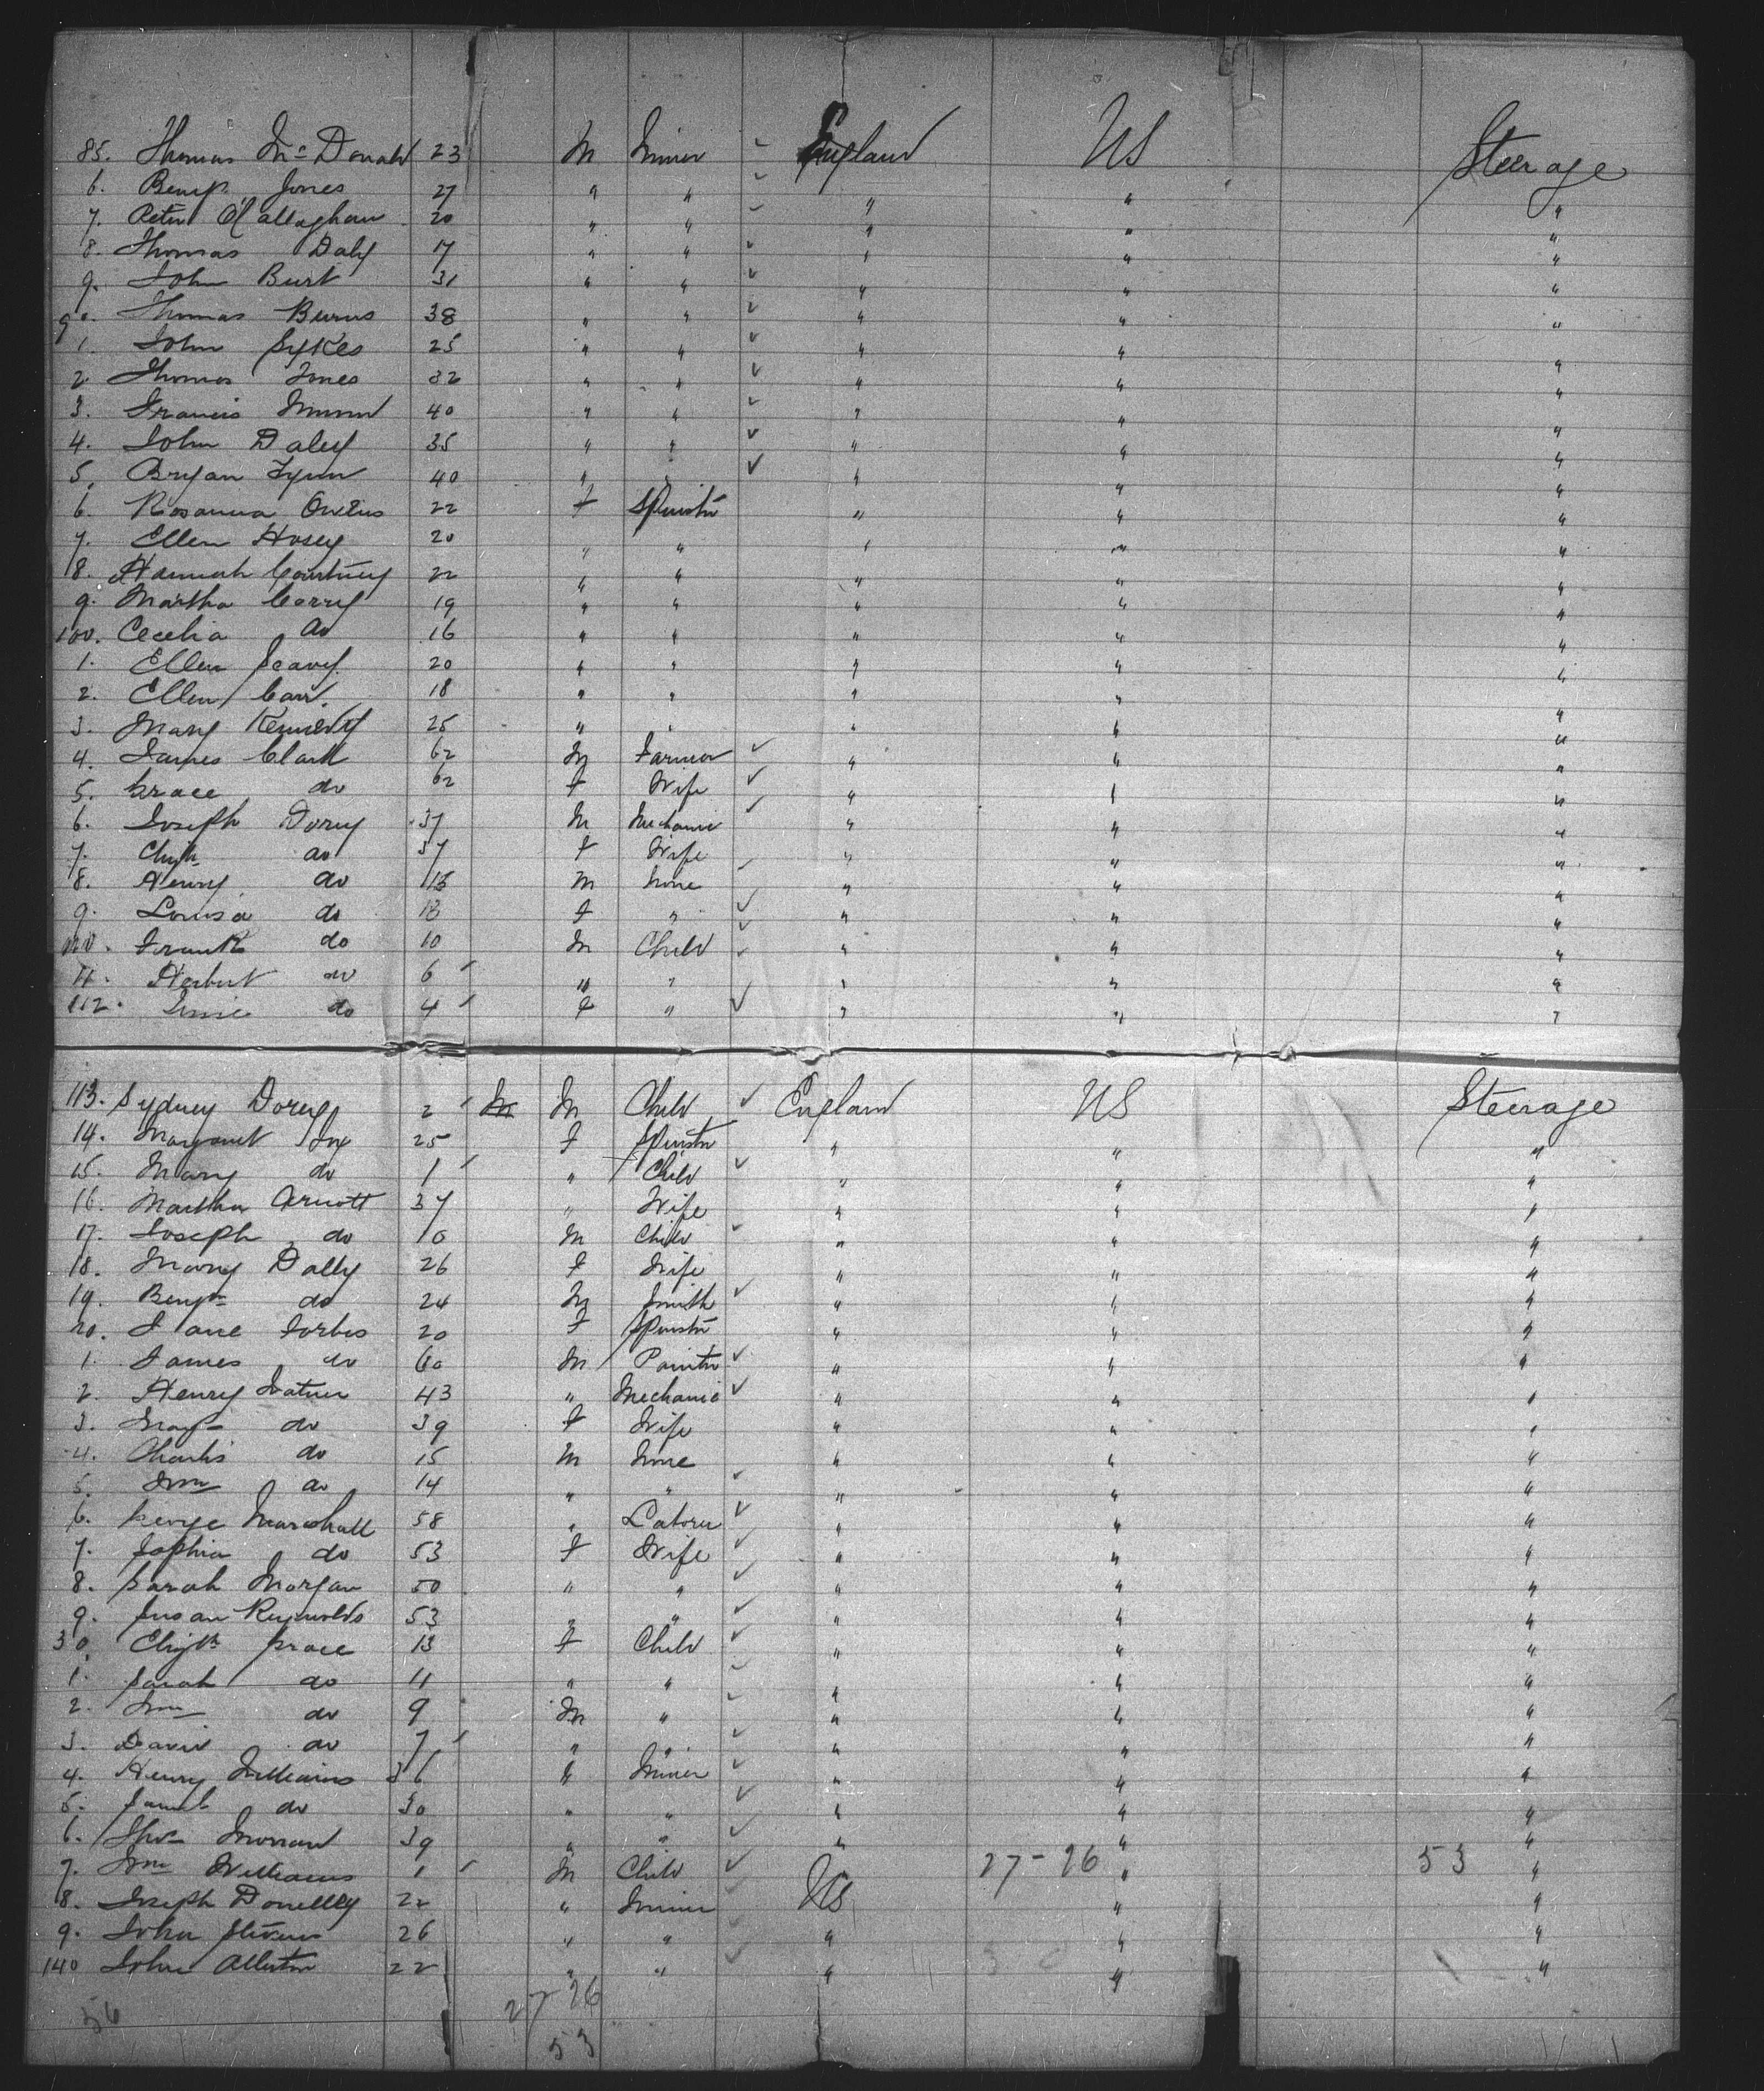 85. Thomas McDonald 23 M Miner England US Steerage
6. Benjn Jones 27 " " " " "
7. Peter O'Callaghan 20 " " " " "
8. Thomas Daly 17 " " " " "
9. John Burt 31 " " " " "
90. Thomas Burns 38 " " " " "
1. John Sykes 25 " " " " "
2. Thomas Jones 32 " " " " "
3. Francis 40 " " " " "
4. John Daley 35 " " " " "
5. Bryan Flynn 40 " " " " "
6. Rosanna Owens 22 F Spinstr " " "
7. Ellen Hosey 20 " " " " "
8. Hannah Courtney 22 " " " " "
9. Martha Corry 19 " " " " "
100. Cecelia do 16 " " " " "
1. Ellen 20 " " " " "
2. Ellen Carr. 18 " " " " "
3. Mary Kennedy 25 " " " " "
4. James Clark 62 M Farmer " " "
5. Grace do 62 F Wife " " "
6. Joseph Dorey 37 M Mechanic " " "
7. do 37 F Wife " " "
8. Henry do 15 M None " " "
9. Louisa do 13 F " " " "
110. Frank do 10 M Child " " "
11. Herbert do 6 " " " " "
112. do 4 F " " " "
113. Sydney Dorey 2 M M Child England US Steerage
14. Margaret 25 F Spinstr " " "
15. Mary do 1 " Child " " "
16. Martha Arnott 37 " Wife " " "
17. Joseph do 10 M Child " " "
18. Mary Dally 26 F Wife " " "
19. Benjn do 24 M Smith " " "
20. Jane Forbes 20 F Spinstr " " "
1. James do 60 M Paintr " " "
2. Henry 43 " Mechanic " " "
3. do 39 F Wife " " "
4. Charles do 15 M None " " "
5. Wm do 14 " " " " "
6. George Marshall 58 " Laborer " " "
7. Sophia do 53 F Wife " " "
8. Sarah Morgan 50 " " " " "
9. Susan Reynolds 53 " " " " "
30. Elizth Grace 13 F Child " " "
1. Sarah do 11 " " " " "
2. Wm do 9 M " " " "
3. David do 7 " " " " "
4. Henry Williams 36 " Miner " " "
5. Saml do 30 " " " " "
6. Thos 39 " " " " "
7. Wm Williams 1 M Child " 27-26 " 53 "
8. Joseph Donelley 22 " Miner US " "
9. John Stevens 26 " " " " "
140 John Allerton 22 " " " " "
56 27 26
53